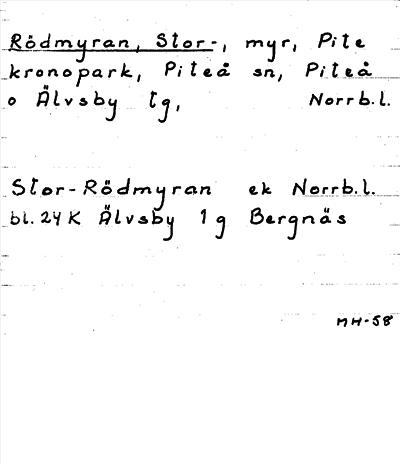 Rödmyran, Stor-, myr, Pite
kronopark, Piteå sn, Piteå
o Älvsby tg, Norrb.l.
Stor-Rödmyran ek Norrb.l.
bl. 24 K Älvsby 1 g Bergnäs
MH-58